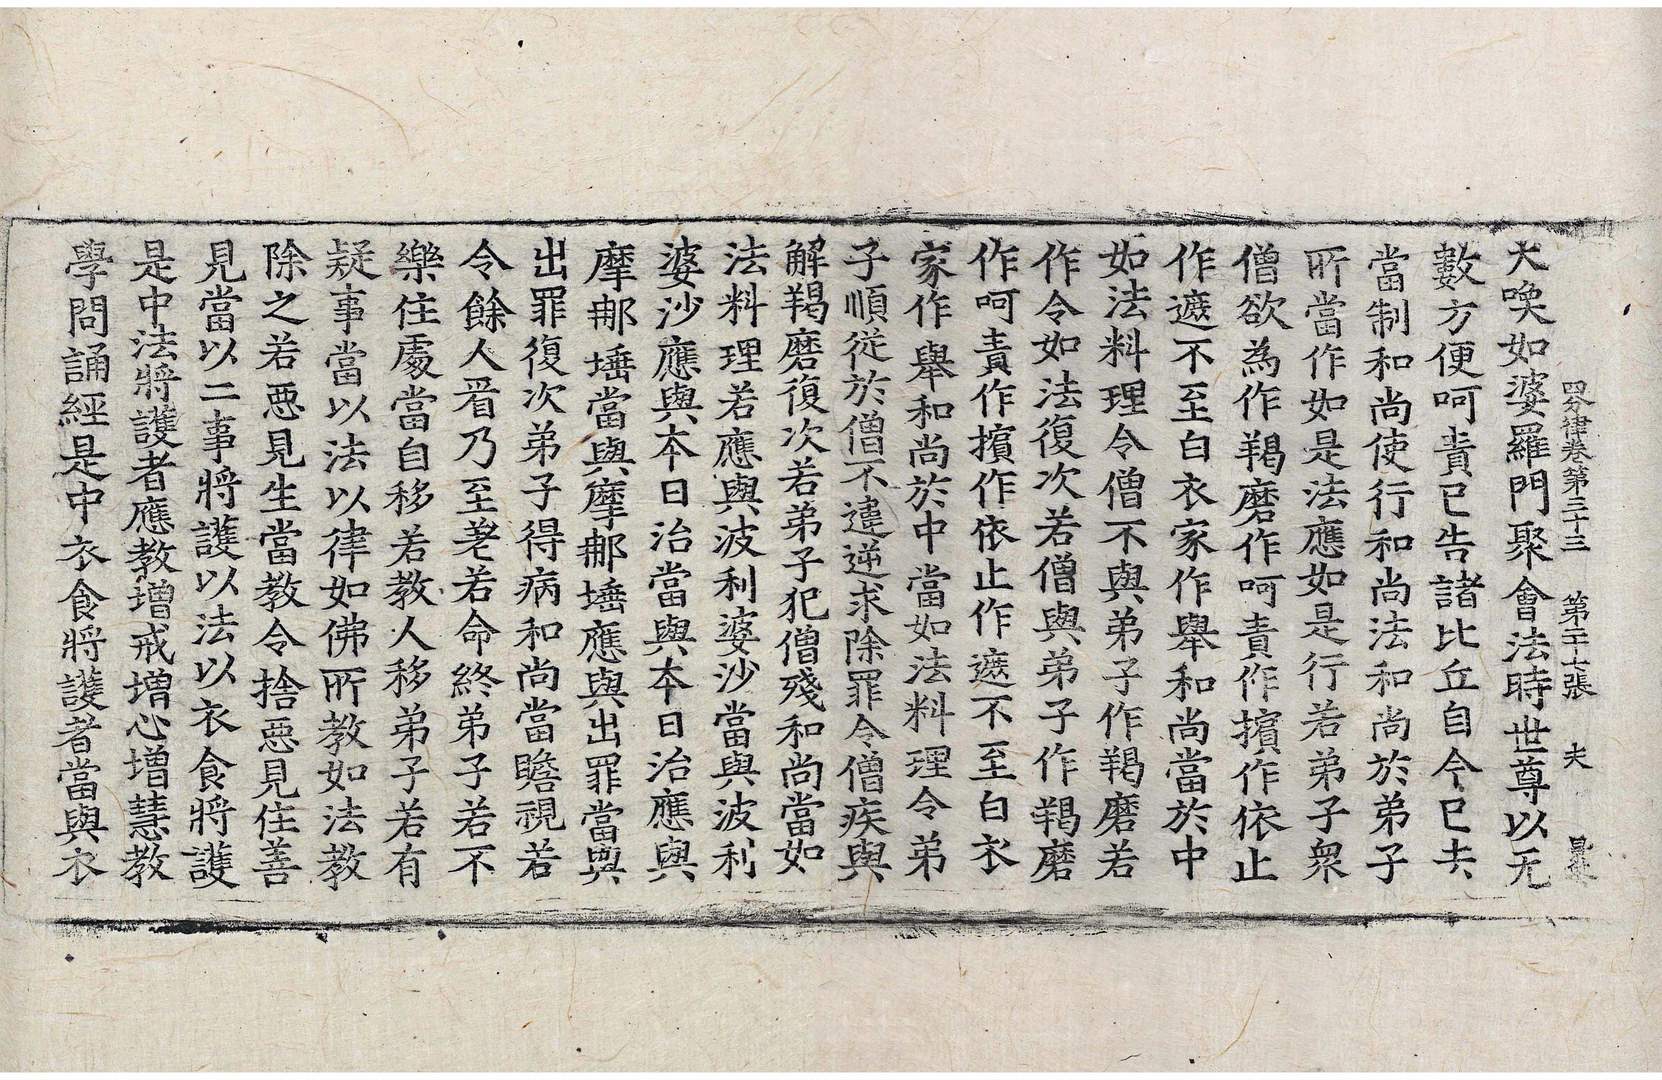 四分律卷第三十三 第二十七張 夫
大喚如婆羅門聚會法時世尊以无
數方便呵責已告諸比丘自今已去
當制和尚使行和尚法和尚於弟子
所當作如是法應如是行若弟子衆
僧欲為作羯磨作呵責作擯作依止
作遮不至白衣家作舉和尚當於中
如法料理令僧不與弟子作羯磨若
作令如法復次若僧與弟子作羯磨
作呵責作擯作依止作遮不至白衣
家作舉和尚於中當如法料理令弟
子順從於僧不違逆求除罪令僧疾與
解羯磨復次若弟子犯僧殘和尚當如
法料理若應與波利婆沙當與波利
婆沙應與本日治當與本日治應與
摩那埵當與摩那埵應與出罪當與
出罪復次弟子得病和尚當瞻視若
令餘人看乃至差若命終弟子若不
樂住處當自移若教人移弟子若有
疑事當以法以律如佛所教如法教
除之若惡見生當教令捨惡見住善
見當以二事將護以法以衣食將護
是中法將護者應教增戒增心增慧教
學問誦經是中衣食將護者當與衣